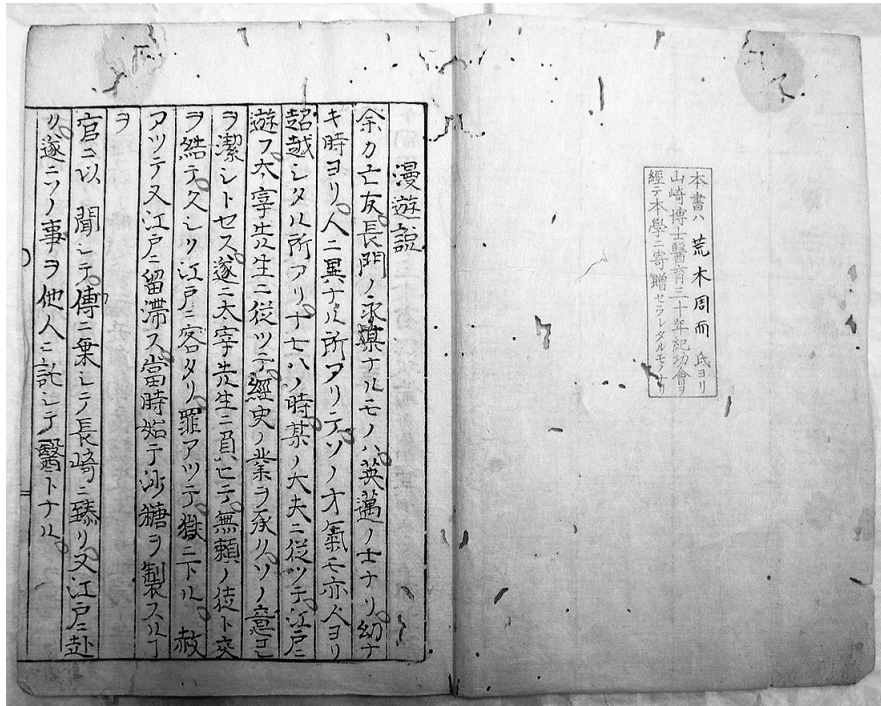 本書ハ 荒木周而 氏ヨリ
山崎博士醫育三十年紀功會ヲ
經テ本學ニ寄贈セラレタルモノナリ
漫遊説
余カ亡友長門ノ永某ナルモノハ英邁ノ士ナリ幼ナ
キ時ヨリ人ニ異ナル所アリテソノ才氣モ亦人ヨリ
超越シタル所アリ十七八ノ時某ノ大夫ニ從ツテ江戸ニ
遊フ太宰先生ニ從ツテ經史ノ業ヲ承クソノ意コレ
ヲ潔シトセス遂ニ太宰先生ニ負ヒテ無頼ノ徒ト交
ヲ結テ久シク江戸ニ客タリ罪アツテ獄ニ下ル赦
アツテ又江戸ニ留滞ス當時始テ沙糖ヲ製スルヿ
ヲ
官ニ以聞シテ傳ニ乗シテ長崎ニ臻リ又江戸ニ赴
ク遂ニソノ事ヲ他人ニ託シテ醫トナル